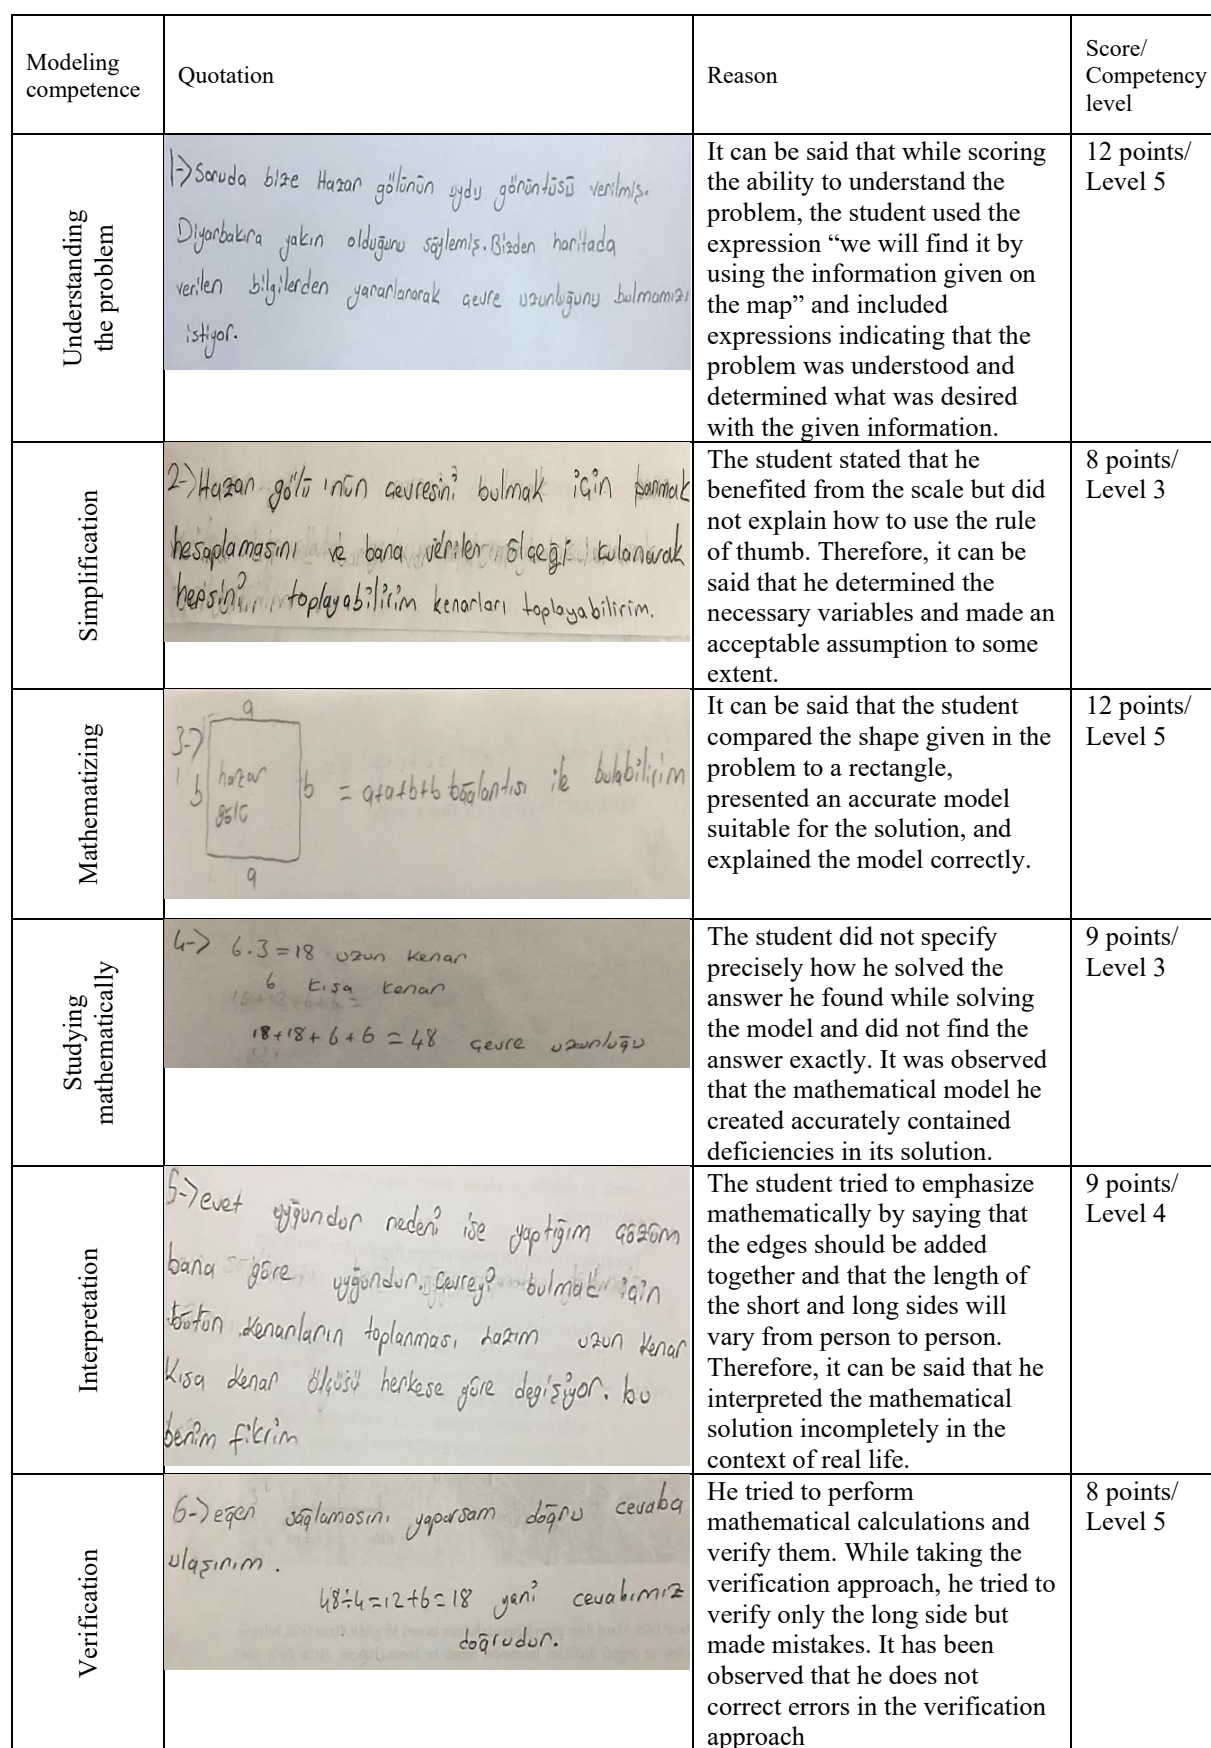 Modeling
competence
Quotation
Reason
Score/
Competency
level
Understanding
the problem
1-) Soruda bize Hazar gölünün uydu görüntüsü verilmiş.
Diyarbakıra yakın olduğunu söylemiş. Bizden haritada
verilen bilgilerden yararlanarak çevre uzunluğunu bulmamızı
istiyor.
It can be said that while scoring
the ability to understand the
problem, the student used the
expression “we will find it by
using the information given on
the map” and included
expressions indicating that the
problem was understood and
determined what was desired
with the given information.
12 points/
Level 5
Simplification
2-) Hazar gölü 'nün çevresini bulmak için parmak
hesaplamasını ve bana verilen ölçeği kulanarak
hepsini toplayabilirim kenarları toplayabilirim.
The student stated that he
benefited from the scale but did
not explain how to use the rule
of thumb. Therefore, it can be
said that he determined the
necessary variables and made an
acceptable assumption to some
extent.
8 points/
Level 3
Mathematizing
a
3-)
b hazar b = a+a+b+b bağlantısı ile bulabilirim
gölü
a
It can be said that the student
compared the shape given in the
problem to a rectangle,
presented an accurate model
suitable for the solution, and
explained the model correctly.
12 points/
Level 5
Studying
mathematically
4-) 6.3=18 uzun kenar
6 kısa kenar
18+18+6+6=48 çevre uzunluğu
The student did not specify
precisely how he solved the
answer he found while solving
the model and did not find the
answer exactly. It was observed
that the mathematical model he
created accurately contained
deficiencies in its solution.
9 points/
Level 3
Interpretation
5-) evet uygundur nedeni ise yaptığım çözüm
bana göre uygundur. Çevreyi bulmak için
bütün kenarların toplanması lazım uzun kenar
kısa kenar ölçüsü herkese göre değişiyor. bu
benim fikrim
The student tried to emphasize
mathematically by saying that
the edges should be added
together and that the length of
the short and long sides will
vary from person to person.
Therefore, it can be said that he
interpreted the mathematical
solution incompletely in the
context of real life.
9 points/
Level 4
Verification
6-) eğer sağlamasını yaparsam doğru cevaba
ulaşırım.
48÷4=12+6=18 yani cevabımız
doğrudur.
He tried to perform
mathematical calculations and
verify them. While taking the
verification approach, he tried to
verify only the long side but
made mistakes. It has been
observed that he does not
correct errors in the verification
approach
8 points/
Level 5